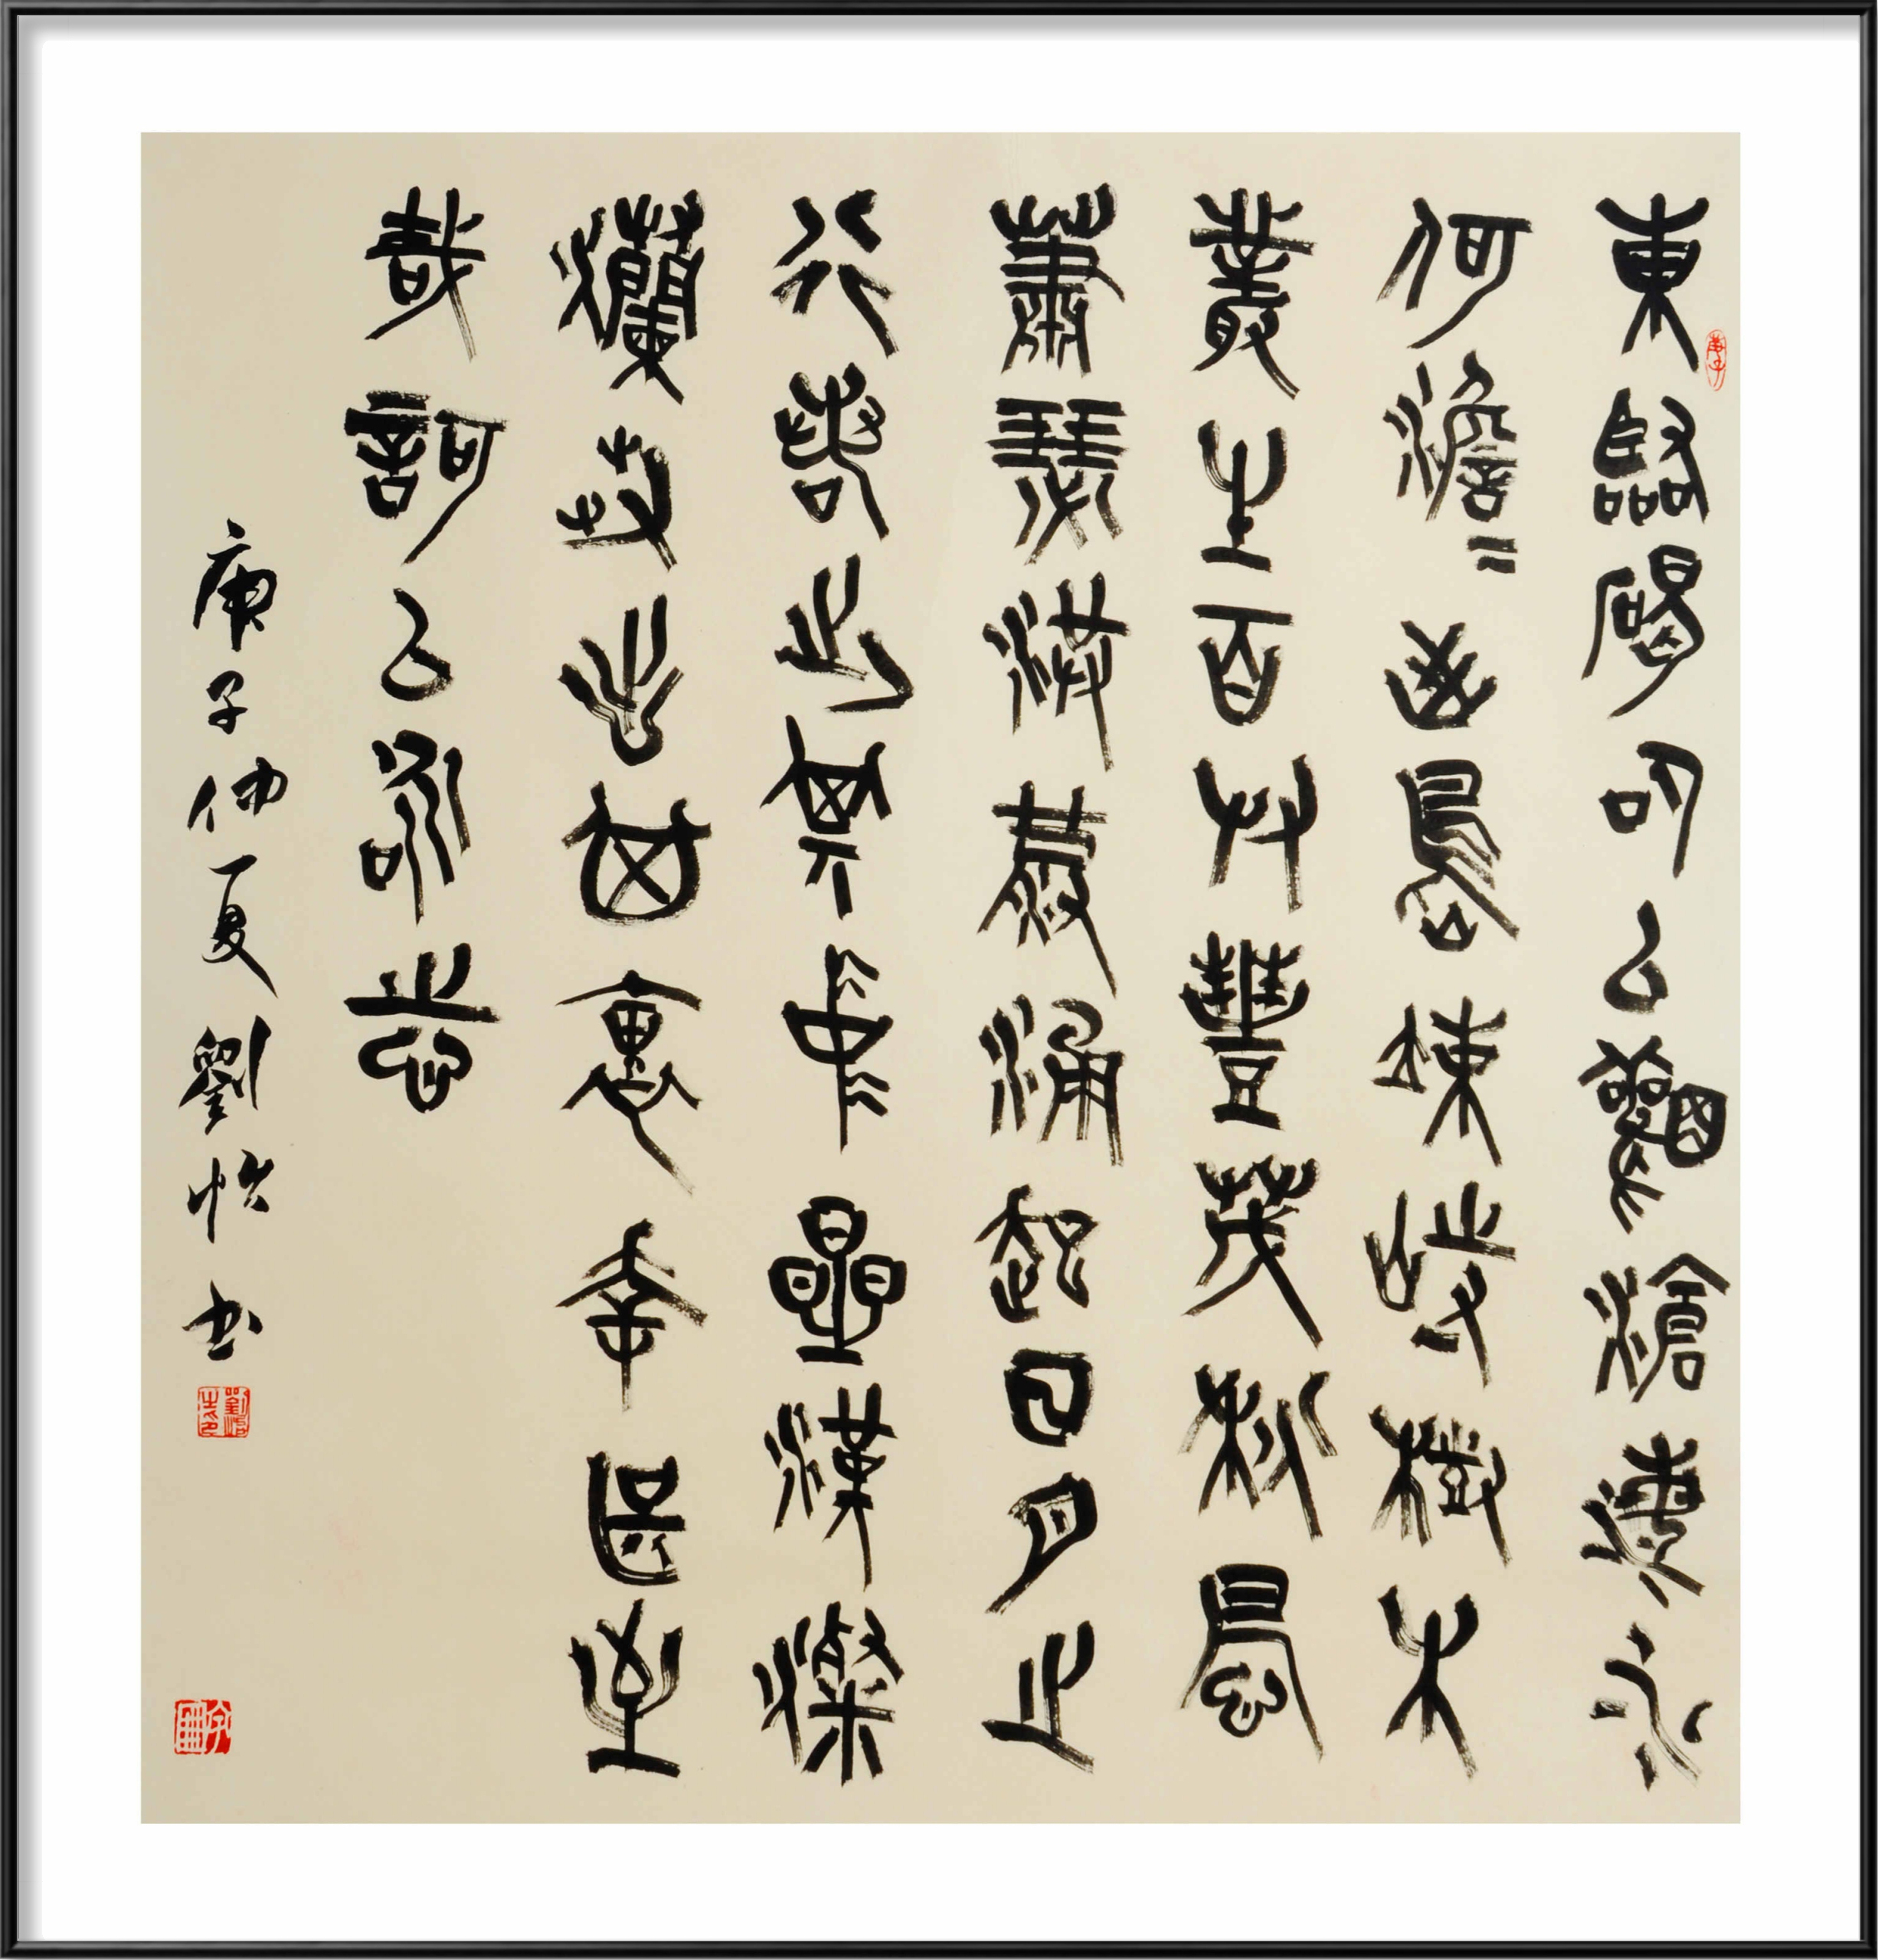 東臨碣石以觀滄海水
何澹〻山島竦峙樹木
叢生百艸豐茂秋風
蕭瑟洪波涌起日月之
行若出其中星漢燦
爛若出其裏幸甚至
哉歌以咏志
庚子仲夏劉怡书
庚子